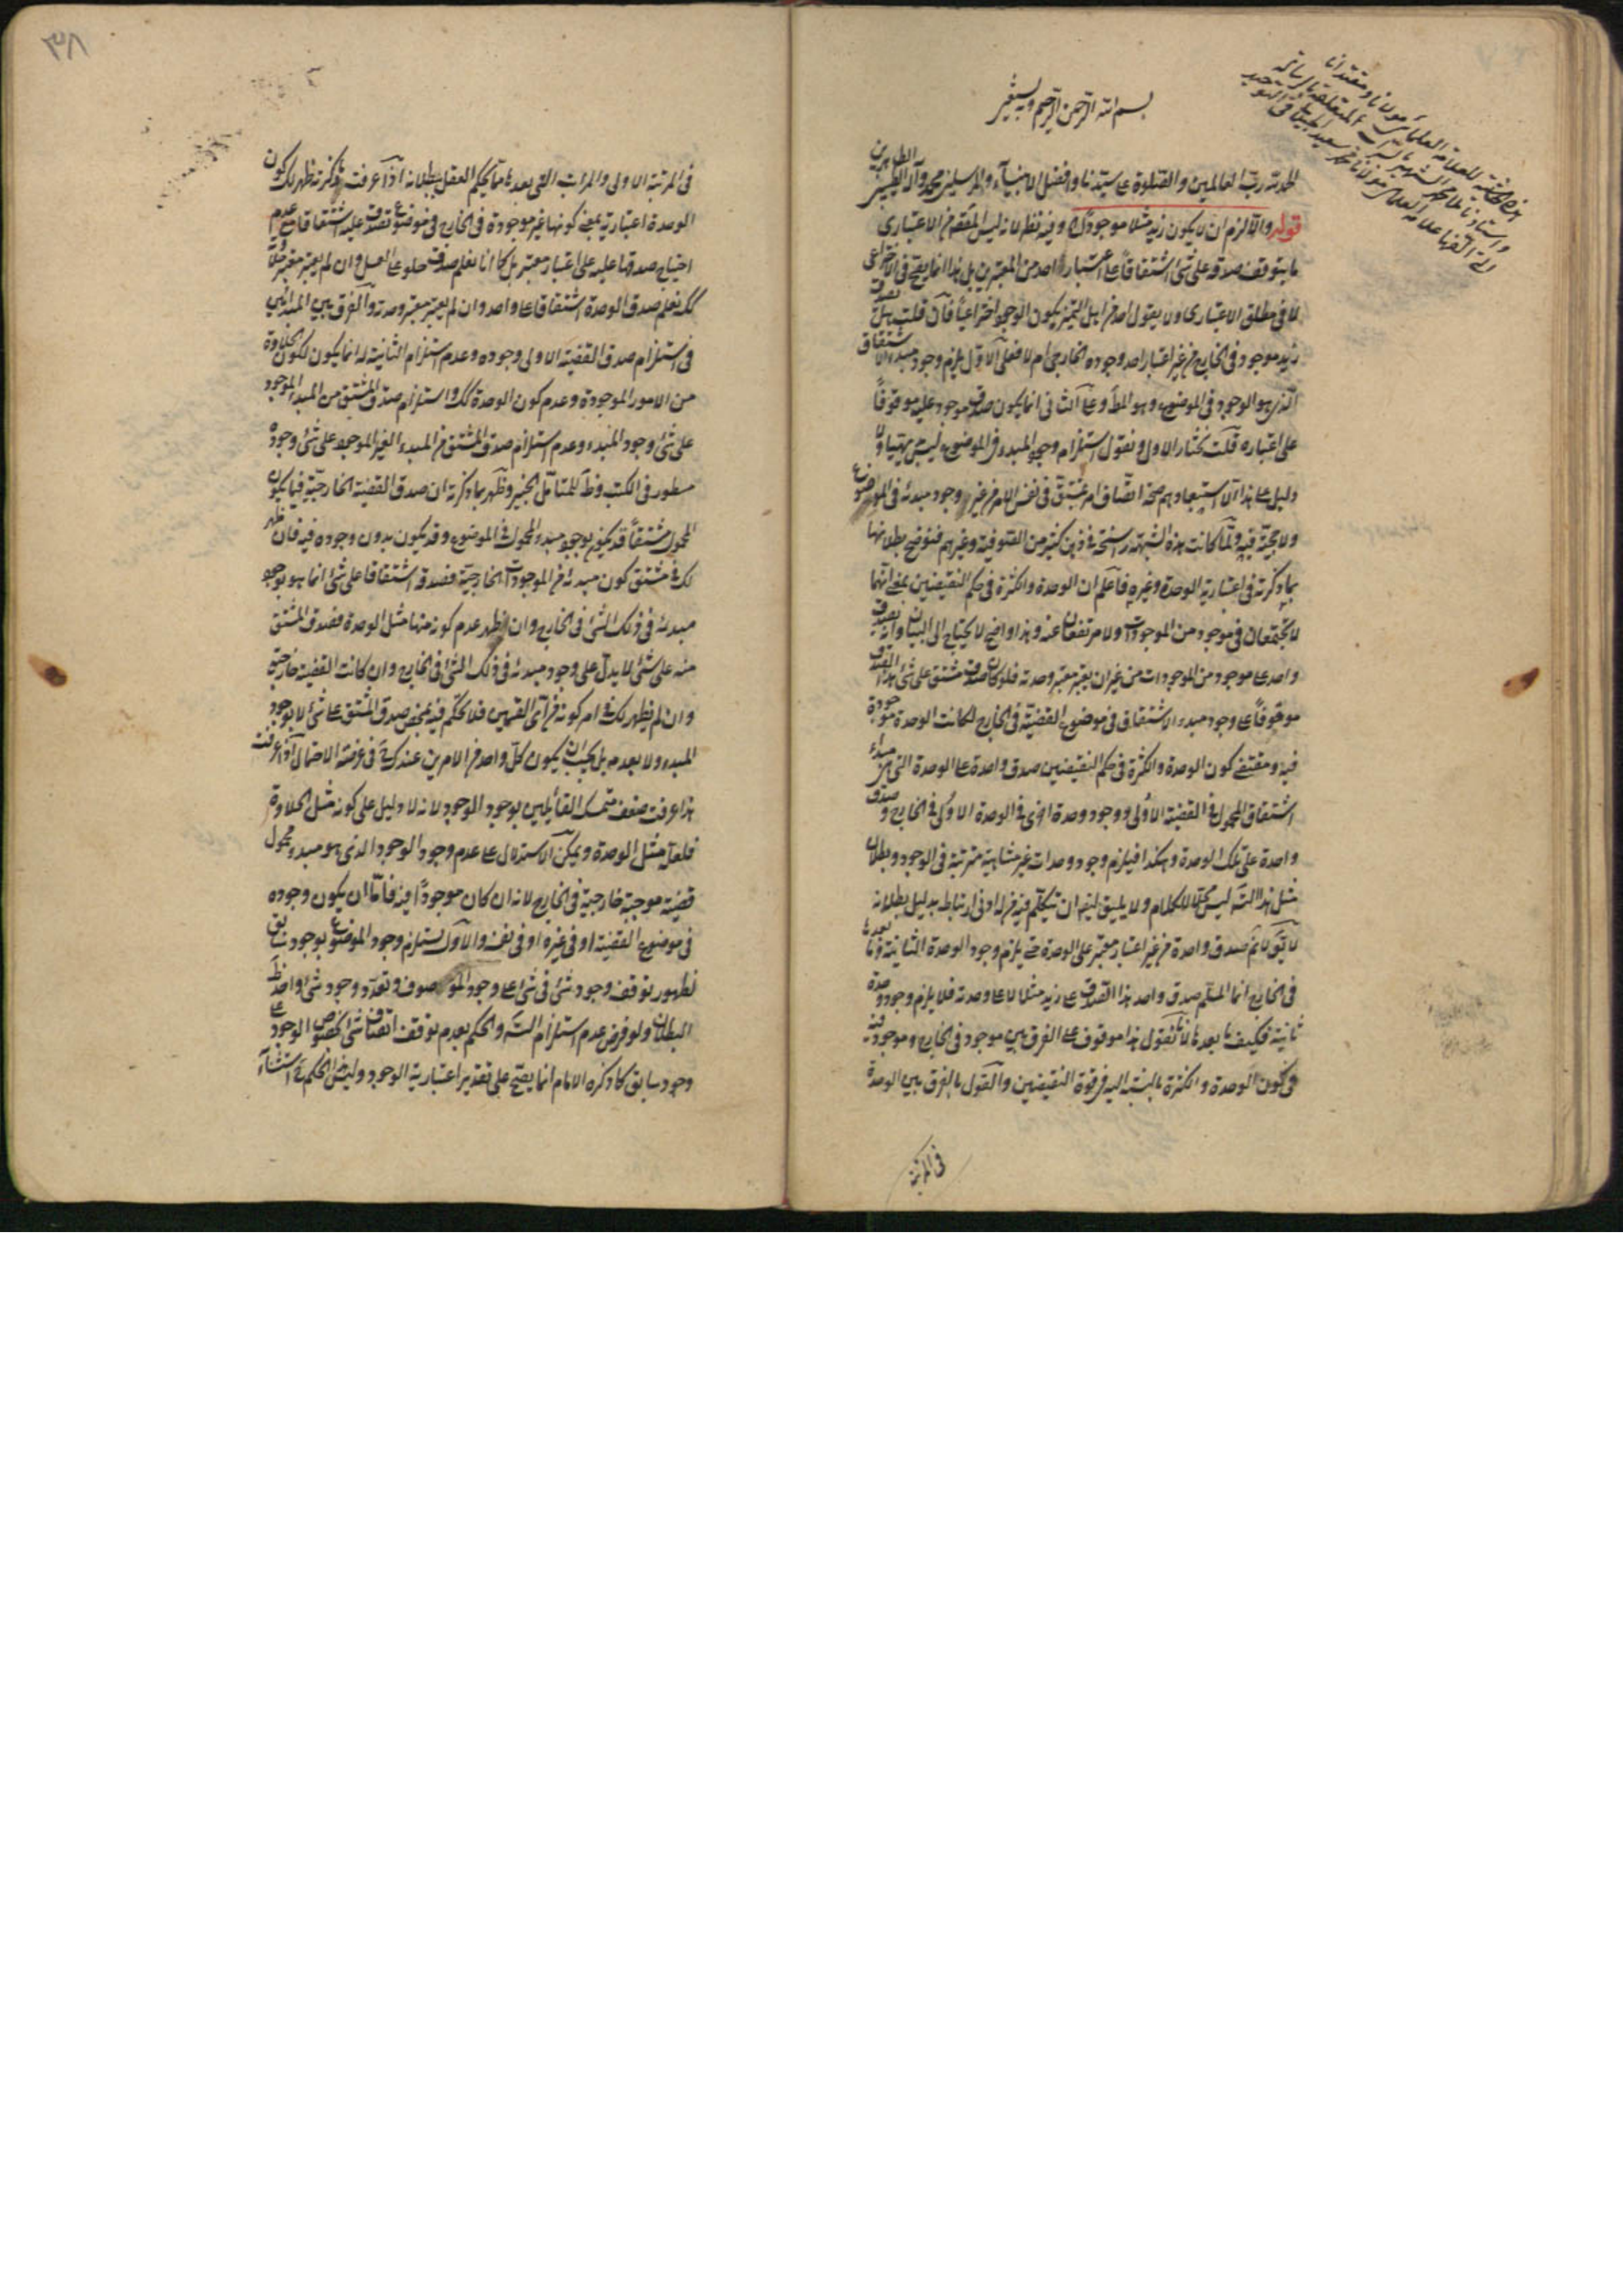 بسم الله الرحمن الرحيم وبه نستعين
الحمد لله رب العالمين والصلوة على سيدنا وافضل الانبياء والمرسلين محمد وآله الطيبين الطاهرين
قوله والا لزم ان لا يكون زيد مثلا موجودا وفيه نظر لانه ليس المقصد من الاعتبارى
ما يتوقف صدقه على شئ اشتقاقا على اعتبار احد من المعتبرين بل هذا انما يصح فى الاختراعى
لا فى مطلق الاعتبارى ولا يقول احد من اهل التميز بكون الوجود اختراعيا فان قلت هل يصدق
زيد موجود فى الخارج من غير اعتبار احد وجوده الخارجى ام لا فعلى الاول يلزم وجود مبدء الاشتقاق
الذى هو الوجود فى الموضوع وهو المط وعلى الثانى انما يكون صدق موجود عليه موقوفا
على اعتباره قلت نختار الاول ونقول استلزام وجود المبدء فى الموضوع ليس بهيّنا ولا
دليل على هذا الا استبعادهم صحة اتصاف امر بمشتق فى نفس الامر من غير وجود مبدئه فى الموضوع
ولا حجية فيه ولما كانت هذه الشبهة راسخة فى ذهن كثير من الصوفية وغيرهم فنوضح بطلانها
بما ذكرته فى اعتبارية الوحدة وغيره فاعلم ان الوحدة والكثرة فى حكم النقيضين بمعنى انهما
لا يجتمعان فى موجود من الموجودات ولا مرتفعان عنه وهذا واضح لا يحتاج الى البيان وانه يصدق
واحد على موجود من الموجودات من غير ان يعتبر معتبر وحدته فلو كان صدق مشتق على شئ هذا الصدق
موقوفا على وجود مبدء الاشتقاق فى موضوع القضية فى الخارج لكانت الوحدة موجودة
فيه ومقتضى كون الوحدة والكثرة فى حكم النقيضين صدق واحدة على الوحدة التى هى مبدء
اشتقاق المحمول فى القضية الاولى ووجود وحدة اخرى فى الوحدة الاولى فى الخارج وصدق
واحدة على تلك الوحدة وهكذا فيلزم وجود وحدات غير متناهية مترتبة فى الوجود وبطلان
مثل هذا التس ليس محلا للكلام ولا يليق ان يتكلم فيه من له ادنى ارتباط بدليل بطلانه
لا يق لا نم صدق واحدة من غير اعتبار معتبر على الوحدة حتى يلزم وجود الوحدة الثانية وما بعدها
فى الخارج انما المسلم صدق واحد هذا الصدق على زيد مثلا لا على وحدته فلا يلزم وجود وحدة
ثانية فكيف ما بعدها لانا نقول هذا موقوف على الفرق بين موجود فى الخارج وموجود فيه
فى كون الوحدة والكثرة بالنسبة اليه فى قوة النقيضين والقول بالفرق بين الوحدة
فى المرتبة
٣٨
فى المرتبة الاولى والمراتب التى بعدها مما يحكم العقل ببطلانه اذا عرفت ما ذكرته ظهر لك كون
الوحدة اعتبارية بمعنى كونها غير موجودة فى الخارج فى موضوع تصدق عليه اشتقاقا مع عدم
احتياج صدقها عليه على اعتبار معتبر بل كما انا نعلم صدق حلو على العسل وان لم يعتبر معتبر حلاوته
كك نعلم صدق الوحدة اشتقاقا على واحد وان لم يعتبر معتبر وحدته والفرق بين المبدأين
فى استلزام صدق القضية الاولى وجوده وعدم استلزام الثانية له انما يكون لكون الحلاوة
من الامور الموجودة وعدم كون الوحدة كك واستلزام صدق المشتق من المبدء الموجود
على شئ وجود المبدء وعدم استلزام صدق المشتق من المبدء الغير الموجود على شئ وجوده
مسطور فى الكتب وظ للمتأمل الخبير وظهر بما ذكرته ان صدق القضية الخارجية فيما يكون
المحمول مشتقا قد يكون بوجود مبدء المحمول فى الموضوع وقد يكون بدون وجوده فيه فان ظهر
لك فى مشتق كون مبدئه من الموجودات الخارجية فصدقه اشتقاقا على شئ انما هو بوجود
مبدئه فى ذلك الشئ فى الخارج وان ظهر عدم كونه منها مثل الوحدة فصدق المشتق
منه على شئ لا يدل على وجود مبدئه فى ذلك الشئ فى الخارج وان كانت القضية خارجية
وان لم يظهر لك فى امر كونه من اى القسمين فلا تحكم فيه بمحض صدق المشتق على شئ لا بوجود
المبدء ولا بعدمه بل يجب ان يكون كل واحد من الامرين عندك فى عرضة الاحتمال اذا عرفت
هذا عرفت ضعف متمسك القائلين بوجود الوجود لانه لا دليل على كونه مثل الحلاوة
فلعله مثل الوحدة ويمكن الاستدلال على عدم وجود الوجود الذى هو مبدء محمول
قضية موجبة خارجية فى الخارج لانه ان كان موجودا فيه فاما ان يكون وجوده
فى موضوع القضية او فى غيره او فى نفسه والاول يستلزم وجود الموضوع بوجود سابق
لظهور توقف وجود شئ فى شئ على وجود الموصوف وتعدد وجود شئ واحد ظ
البطلان ولو فرض عدم استلزام التس والحكم بعدم توقف اتصاف شئ بخصوص الوجود على
وجود سابق كما ذكره الامام انما يصح على تقدير اعتبارية الوجود وليس الحكم استثناء